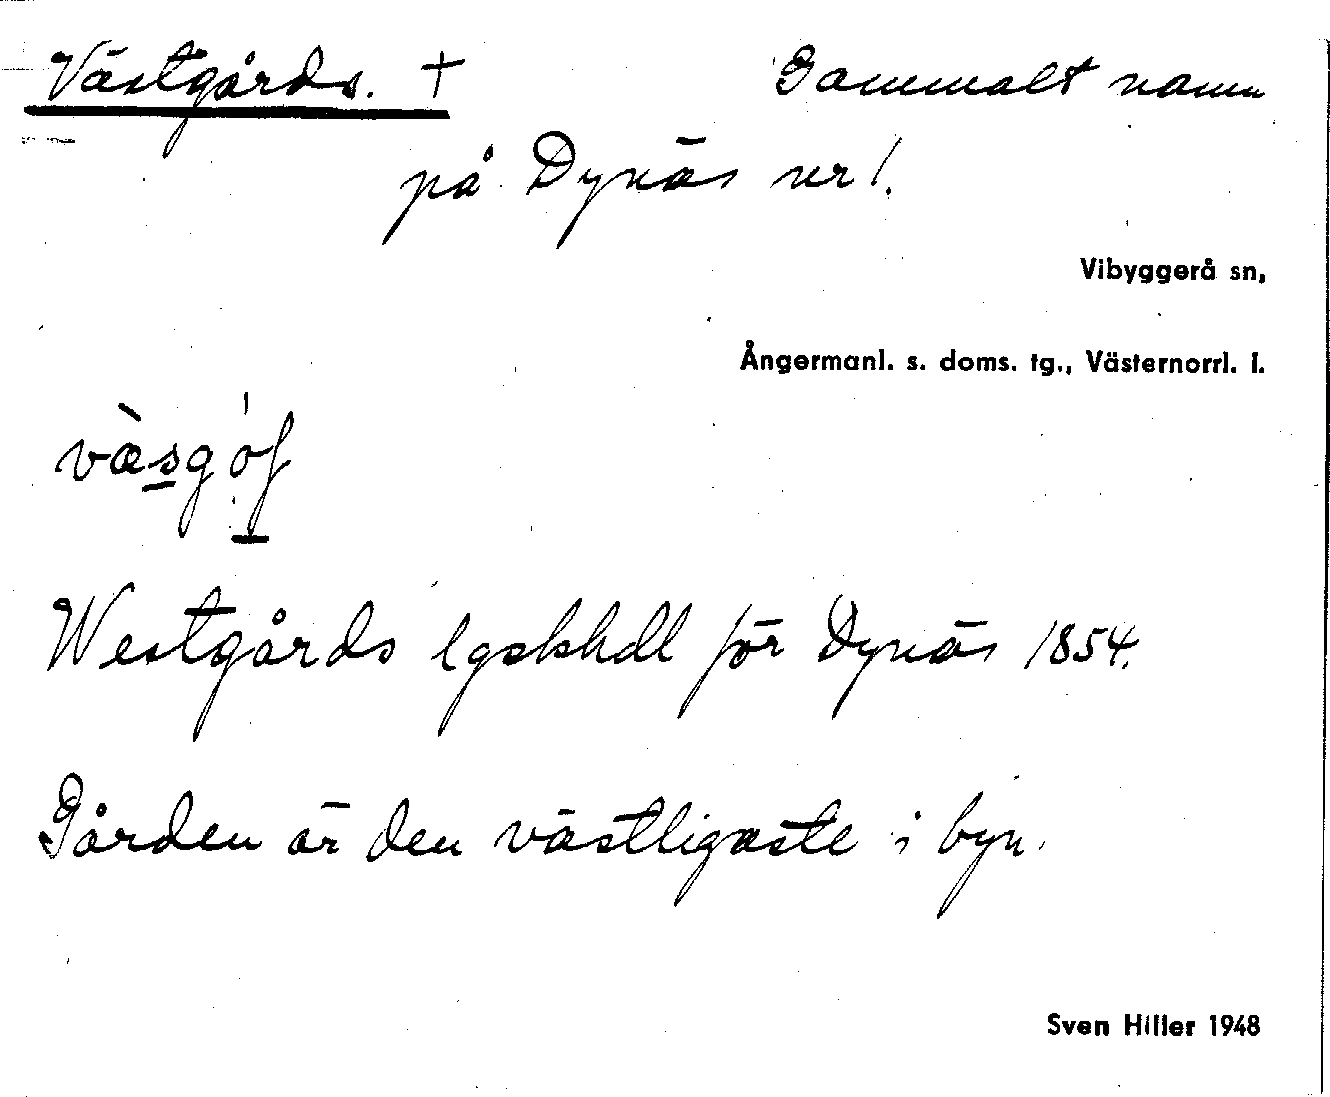 Västgårds. + Gammalt namn
på Dynäs nr 1.
Vibyggerå sn,
Ångermanl. s. doms. tg., Västernorrl. l.
Westgårds lgskhdl för Dynäs 1854.
Gården är den västligaste i byn.
Sven Hiller 1948